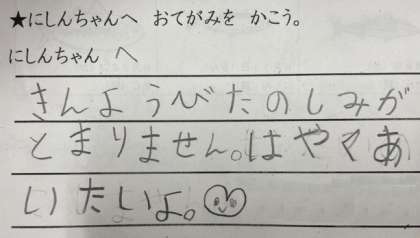 ★にしんちゃんへ おてがみを かこう。
にしんちゃん へ
きんようびたのしみが
とまりません。はやくあ
いたいよ。